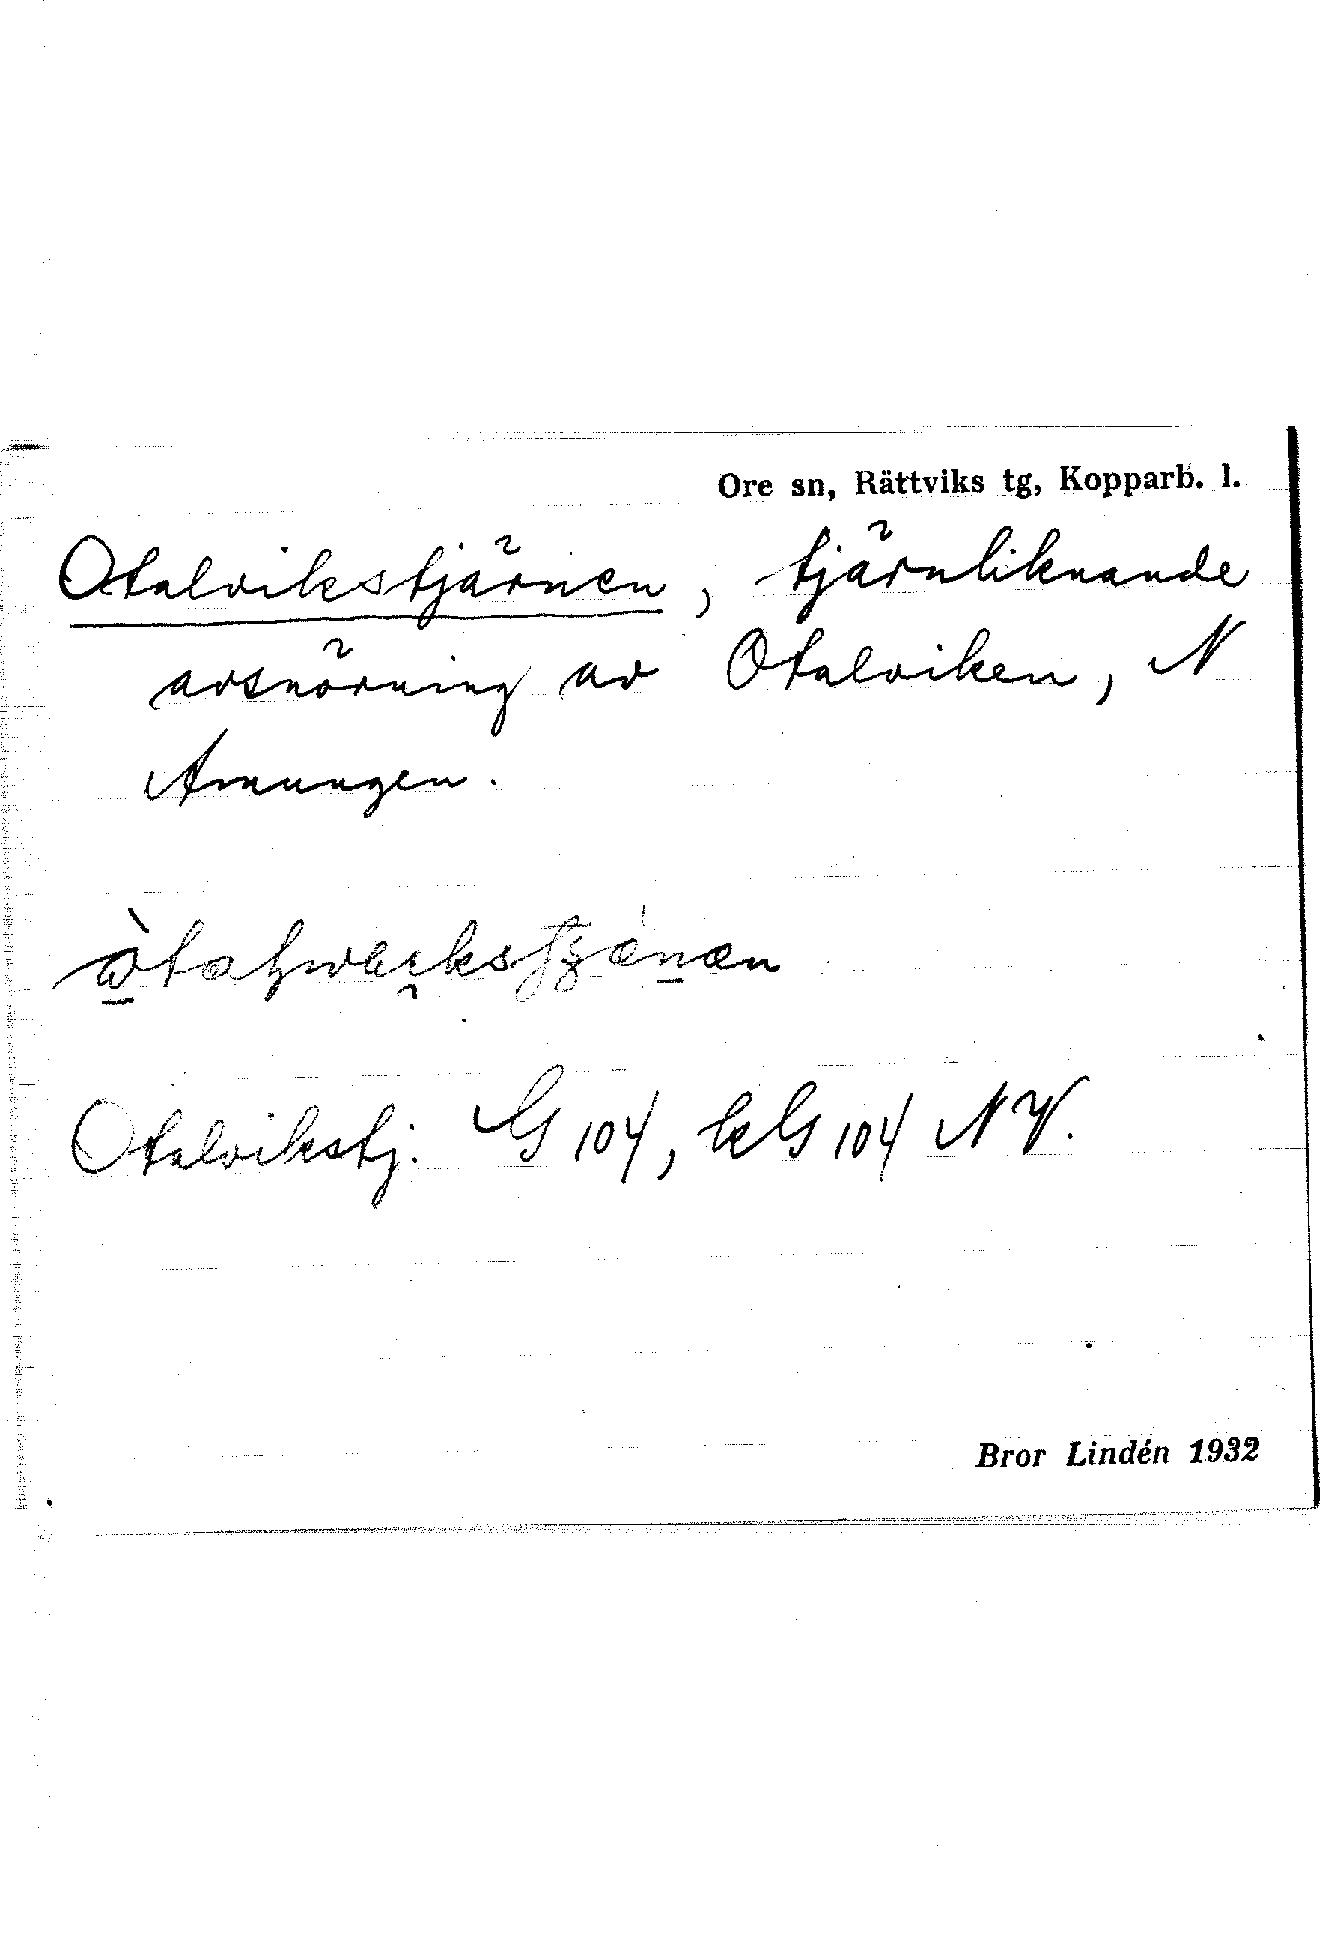 Ore sn, Rättviks tg, Kopparb. l.
Otalvikstjärnen, tjärnliknande
avsnörning av Otalviken, N
Amungen.
Otalvikstj. G 104, kG 104 NV.
Bror Lindén 1932